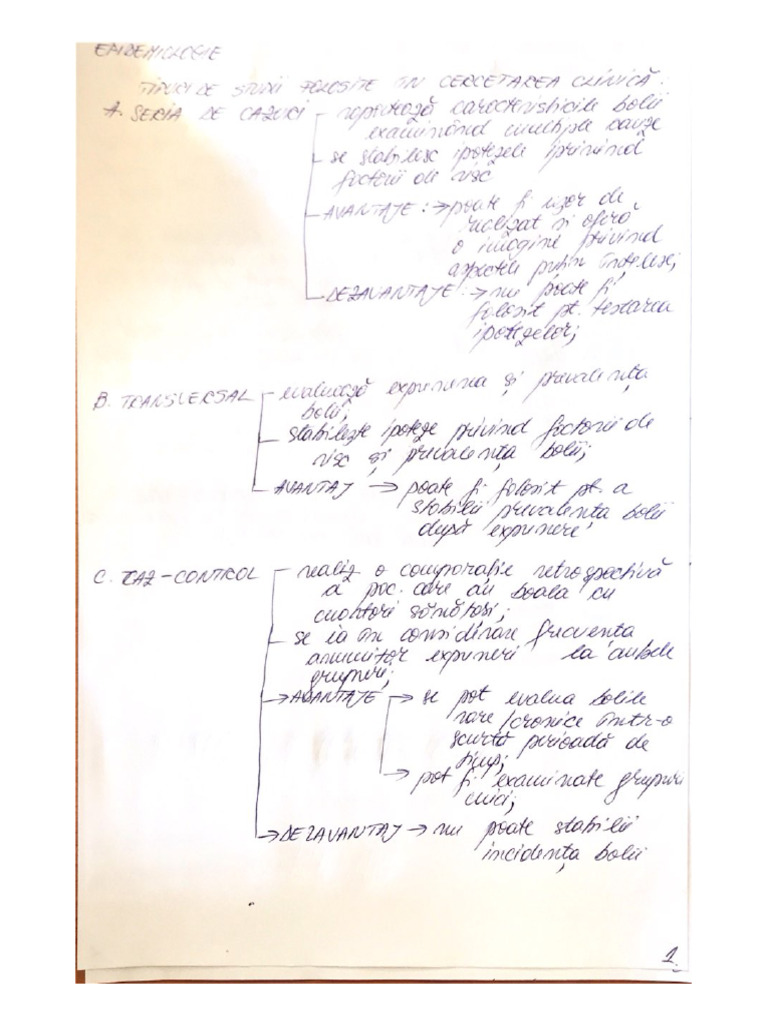 EPIDEMIOLOGIE
TIPURI DE STUDII FOLOSITE ÎN CERCETAREA CLINICĂ.
A. SERIA DE CAZURI - raportează caracteristicile bolii
examinând multiple cauze
- se stabilesc ipotezele privind
factorii de risc
- AVANTAJE: → poate fi ușor de
realizat și oferă
o imagine privind
aspectele puțin înțelese;
- DEZAVANTAJE: → nu poate fi
folosit pt. testarea
ipotezelor;
B. TRANSVERSAL - evaluează expunerea și prevalența
bolii;
- stabilește ipoteze privind factorii de
risc și prevalența bolii;
- AVANTAJ → poate fi folosit pt. a
stabilii prevalența bolii
după expunere
C. CAZ-CONTROL - realiz o comparație retrospectivă
a pac. care au boala cu
martori sănătoși;
- se ia în considerare frecvența
anumitor expuneri la ambele
grupuri;
→ AVANTAJE → se pot evalua bolile
rare/cronice într-o
scurtă perioadă de
timp;
→ pot fi examinate grupuri
mici;
→ DEZAVANTAJ → nu poate stabilii
incidența bolii
1.